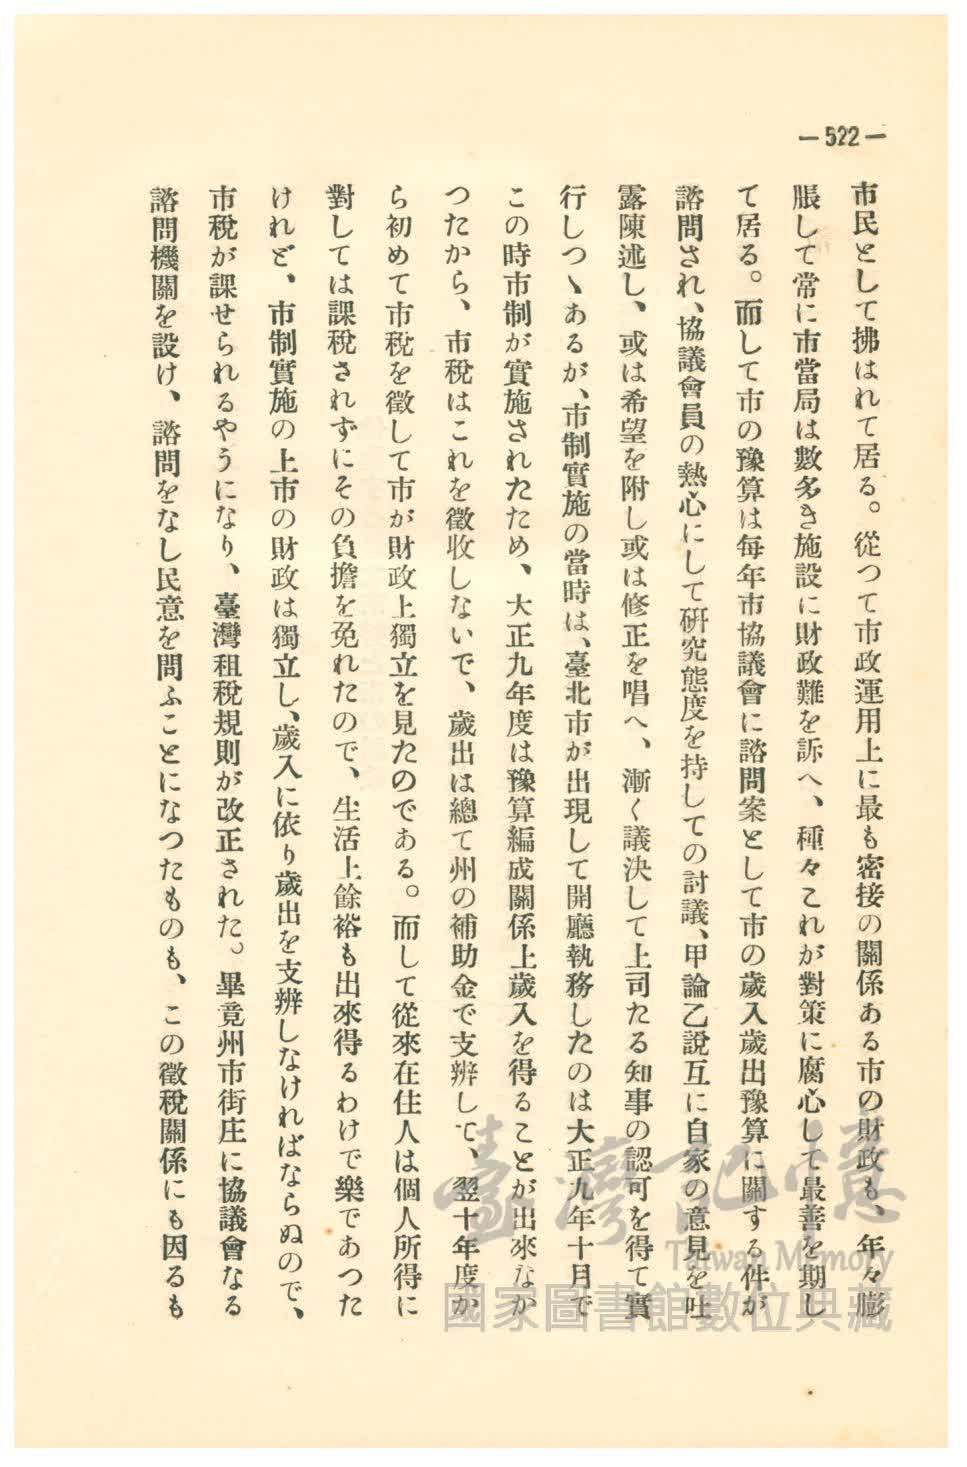 — 522 —
市民として拂はれて居る。從つて市政運用上に最も密接の關係ある市の財政も、年々膨
脹して常に市當局は數多き施設に財政難を訴へ、種々これが對策に腐心して最善を期し
て居る。而して市の豫算は每年市協議會に諮問案として市の歲入歲出豫算に關する件が
諮問され、協議會員の熱心にして硏究態度を持しての討議、甲論乙說互に自家の意見を吐
露陳述し、或は希望を附し或は修正を唱へ、漸く議決して上司たる知事の認可を得て實
行しつゝあるが、市制實施の當時は、臺北市が出現して開廳執務したのは大正九年十月で
この時市制が實施されたため、大正九年度は豫算編成關係上歲入を得ることが出來なか
つたから、市稅はこれを徵收しないで、歲出は總て州の補助金で支辨して、翌十年度か
ら初めて市稅を徵して市が財政上獨立を見たのである。而して從來在住人は個人所得に
對しては課稅されずにその負擔を免れたので、生活上餘裕も出來得るわけで樂であつた
けれど、市制實施の上市の財政は獨立し、歲入に依り歲出を支辨しなければならぬので、
市稅が課せられるやうになり、臺灣租稅規則が改正された。畢竟州市街庄に協議會なる
諮問機關を設け、諮問をなし民意を問ふことになつたものも、この徵稅關係にも因るも
臺灣記憶
Taiwan Memory
國家圖書館數位典藏